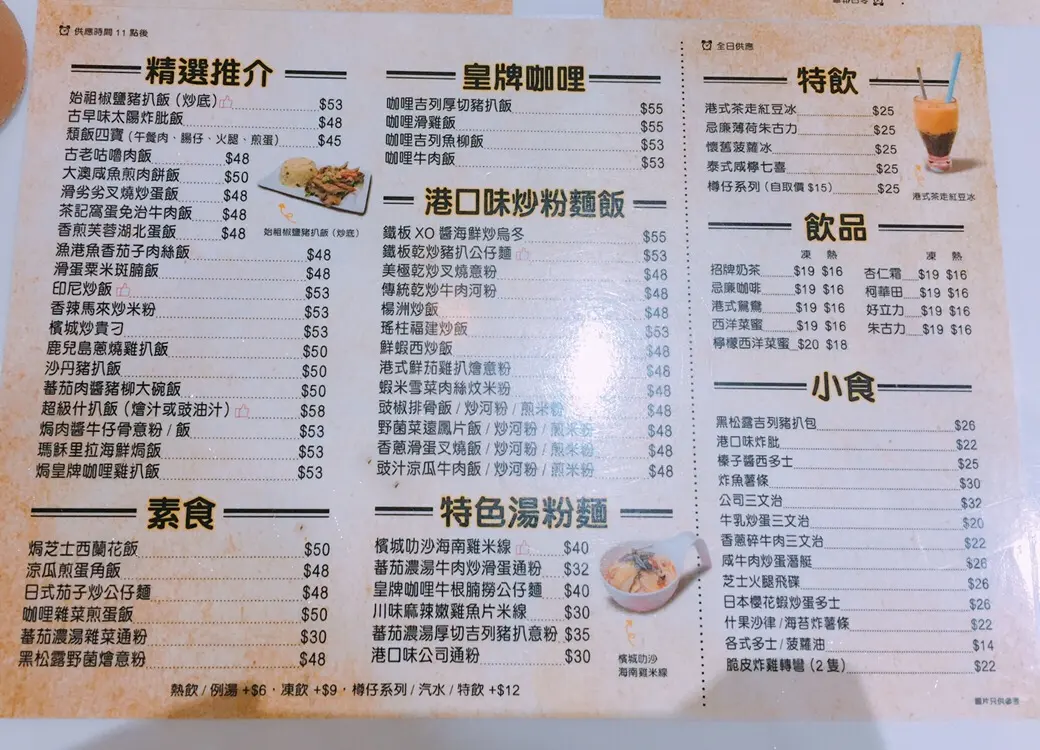 供應時間 11 點後
精選推介
始祖椒鹽豬扒飯 (炒底) $53
古早味太陽炸肶飯 $48
頹飯四寶 (午餐肉、腸仔、火腿、煎蛋) $45
古老咕嚕肉飯 $48
大澳咸魚煎肉餅飯 $50
滑劣劣叉燒炒蛋飯 $48
茶記窩蛋免治牛肉飯 $48
香煎芙蓉湖北蛋飯 $48
始祖椒鹽豬扒飯 (炒底)
漁港魚香茄子肉絲飯 $48
滑蛋粟米斑腩飯 $48
印尼炒飯 $53
香辣馬來炒米粉 $53
檳城炒貴刁 $53
鹿兒島蔥燒雞扒飯 $50
沙丹豬扒飯 $50
蕃茄肉醬豬柳大碗飯 $50
超級什扒飯 (燴汁或豉油汁) $58
焗肉醬牛仔骨意粉 / 飯 $53
瑪穌里拉海鮮焗飯 $53
焗皇牌咖哩雞扒飯 $53
素食
焗芝士西蘭花飯 $50
涼瓜煎蛋角飯 $48
日式茄子炒公仔麵 $48
咖哩雜菜煎蛋飯 $50
蕃茄濃湯雜菜通粉 $30
黑松露野菌燴意粉 $48
皇牌咖哩
咖哩吉列厚切豬扒飯 $55
咖哩滑雞飯 $55
咖哩吉列魚柳飯 $53
咖哩牛肉飯 $53
港口味炒粉麵飯
鐵板 XO 醬海鮮炒烏冬 $55
鐵板乾炒豬扒公仔麵 $53
美極乾炒叉燒意粉 $48
傳統乾炒牛肉河粉 $48
楊洲炒飯 $48
瑤柱福建炒飯 $53
鮮蝦西炒飯 $48
港式鮮茄雞扒燴意粉 $48
蝦米雪菜肉絲炆米粉 $48
豉椒排骨飯 / 炒河粉 / 煎米粉 $48
野菌菜遠鳳片飯 / 炒河粉 / 煎米粉 $48
香蔥滑蛋叉燒飯 / 炒河粉 / 煎米粉 $48
豉汁涼瓜牛肉飯 / 炒河粉 / 煎米粉 $48
特色湯粉麵
檳城叻沙海南雞米線 $40
蕃茄濃湯牛肉炒滑蛋通粉 $32
皇牌咖哩牛根腩撈公仔麵 $40
川味麻辣嫩雞魚片米線 $30
蕃茄濃湯厚切吉列豬扒意粉 $35
港口味公司通粉 $30
檳城叻沙
海南雞米線
熱飲 / 例湯 +$6，凍飲 +$9，樽仔系列 / 汽水 / 特飲 +$12
全日供應
特飲
港式茶走紅豆冰 $25
忌廉薄荷朱古力 $25
懷舊菠蘿冰 $25
泰式咸檸七喜 $25
樽仔系列 (自取價 $15) $25
港式茶走紅豆冰
飲品
凍 熱
招牌奶茶 $19 $16
忌廉咖啡 $19 $16
港式鴛鴦 $19 $16
西洋菜蜜 $19 $16
檸檬西洋菜蜜 $20 $18
凍 熱
杏仁霜 $19 $16
柯華田 $19 $16
好立力 $19 $16
朱古力 $19 $16
小食
黑松露吉列豬扒包 $26
港口味炸肶 $22
榛子醬西多士 $25
炸魚薯條 $30
公司三文治 $32
牛乳炒蛋三文治 $20
香蔥碎牛肉三文治 $22
咸牛肉炒蛋潛艇 $26
芝士火腿飛碟 $26
日本櫻花蝦炒蛋多士 $26
什果沙律 / 海苔炸薯條 $22
各式多士 / 菠蘿油 $14
脆皮炸雞轉彎 (2 隻) $22
圖片只供參考